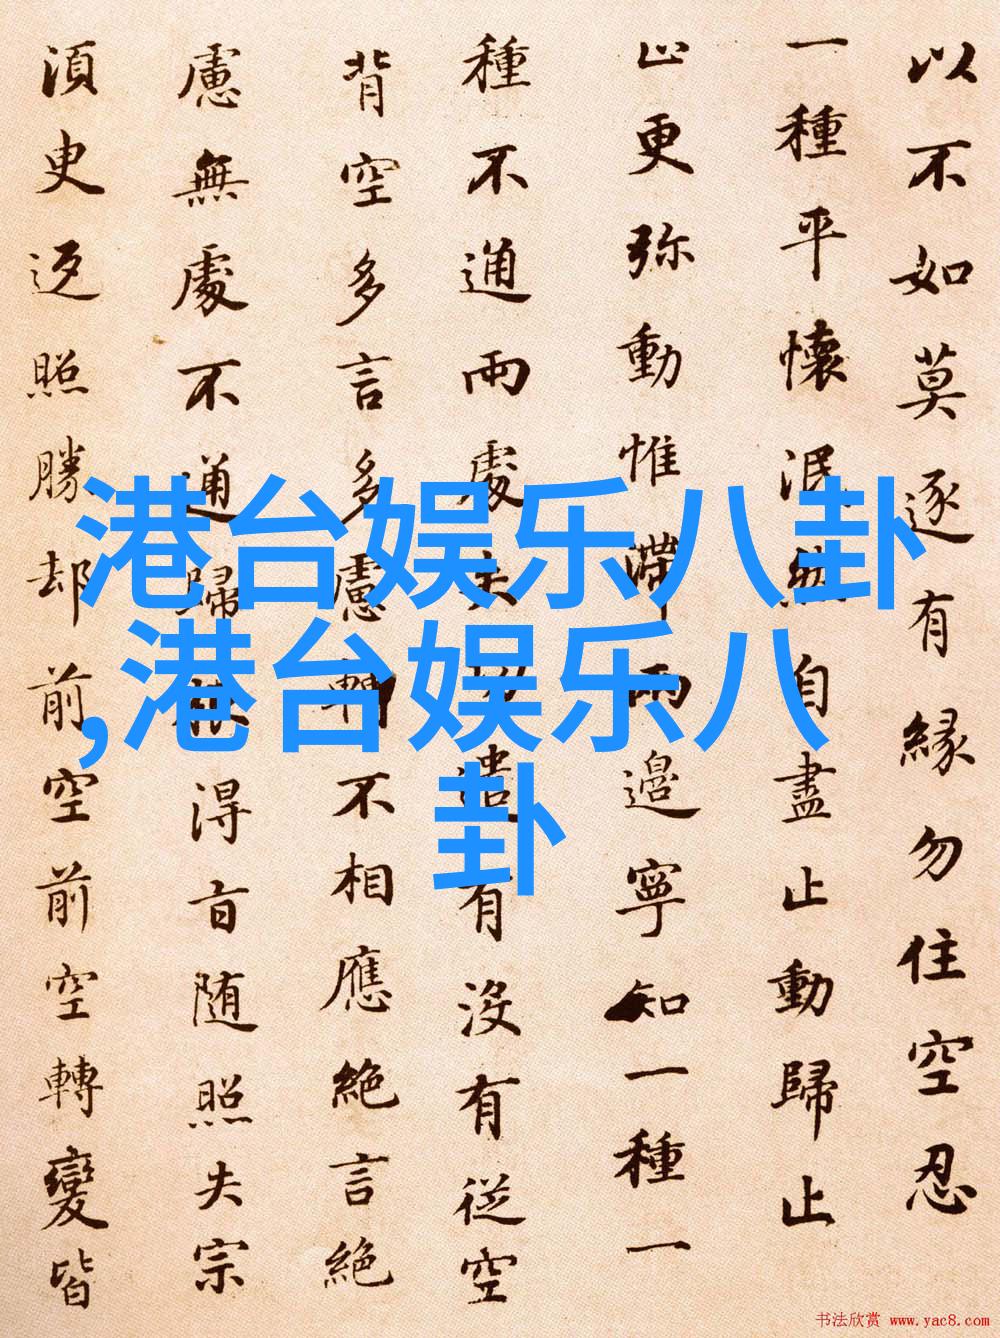 港台娱乐八卦
,港台娱乐八
卦
以不如莫逐有緣勿住空忍
一種平懷泯然自盡止動歸止
止更弥動惟滯兩邊寧知一種一
種不通兩處失功遣有沒有從空
背空多言多慮轉不相應絕言絕
慮無處不通歸根得旨随照失宗
須臾返照勝却前空前空轉變皆
书法欣赏 www.yac8.com